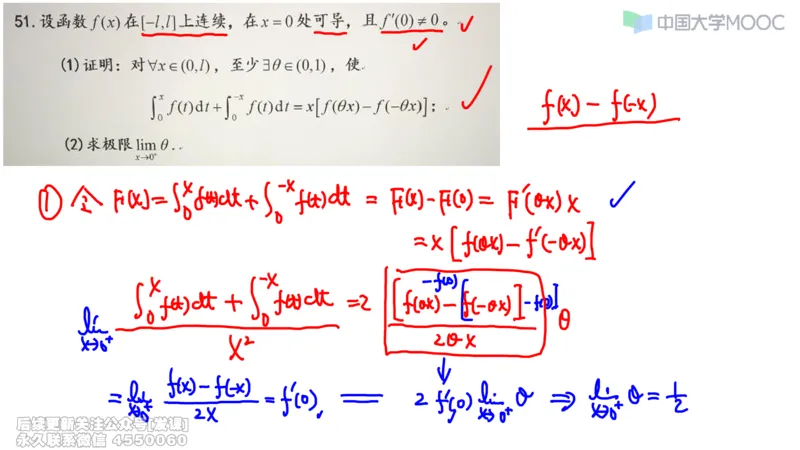 51. 设函数 f(x) 在 [-l,l] 上连续，在 x=0 处可导，且 f'(0)≠0。
中国大学MOOC
(1) 证明：对 ∀x∈(0,l)，至少 ∃θ∈(0,1)，使
∫₀ˣ f(t)dt+∫₀⁻ˣ f(t)dt=x[f(θx)-f(-θx)]；
f(x) - f(-x)
(2) 求极限 lim_{x→0⁺} θ.
① 令 F(x)=∫₀ˣ f(t)dt+∫₀⁻ˣ f(t)dt = F(x)-F(0) = F'(θx) x
= x [f(θx) - f'(-θx)]
lim_{x→0⁺} (∫₀ˣ f(t)dt + ∫₀⁻ˣ f(t)dt)/x² = 2 [f(θx) -f(0) - [f(-θx)] -f(0)]/(2θx) θ
= lim_{x→0⁺} (f(x)-f(-x))/(2x) = f'(0) = 2 f'(0) lim_{x→0⁺} θ ⇒ lim_{x→0⁺} θ = 1/2
后续更新关注公众号[发课]
永久联系微信 4550060